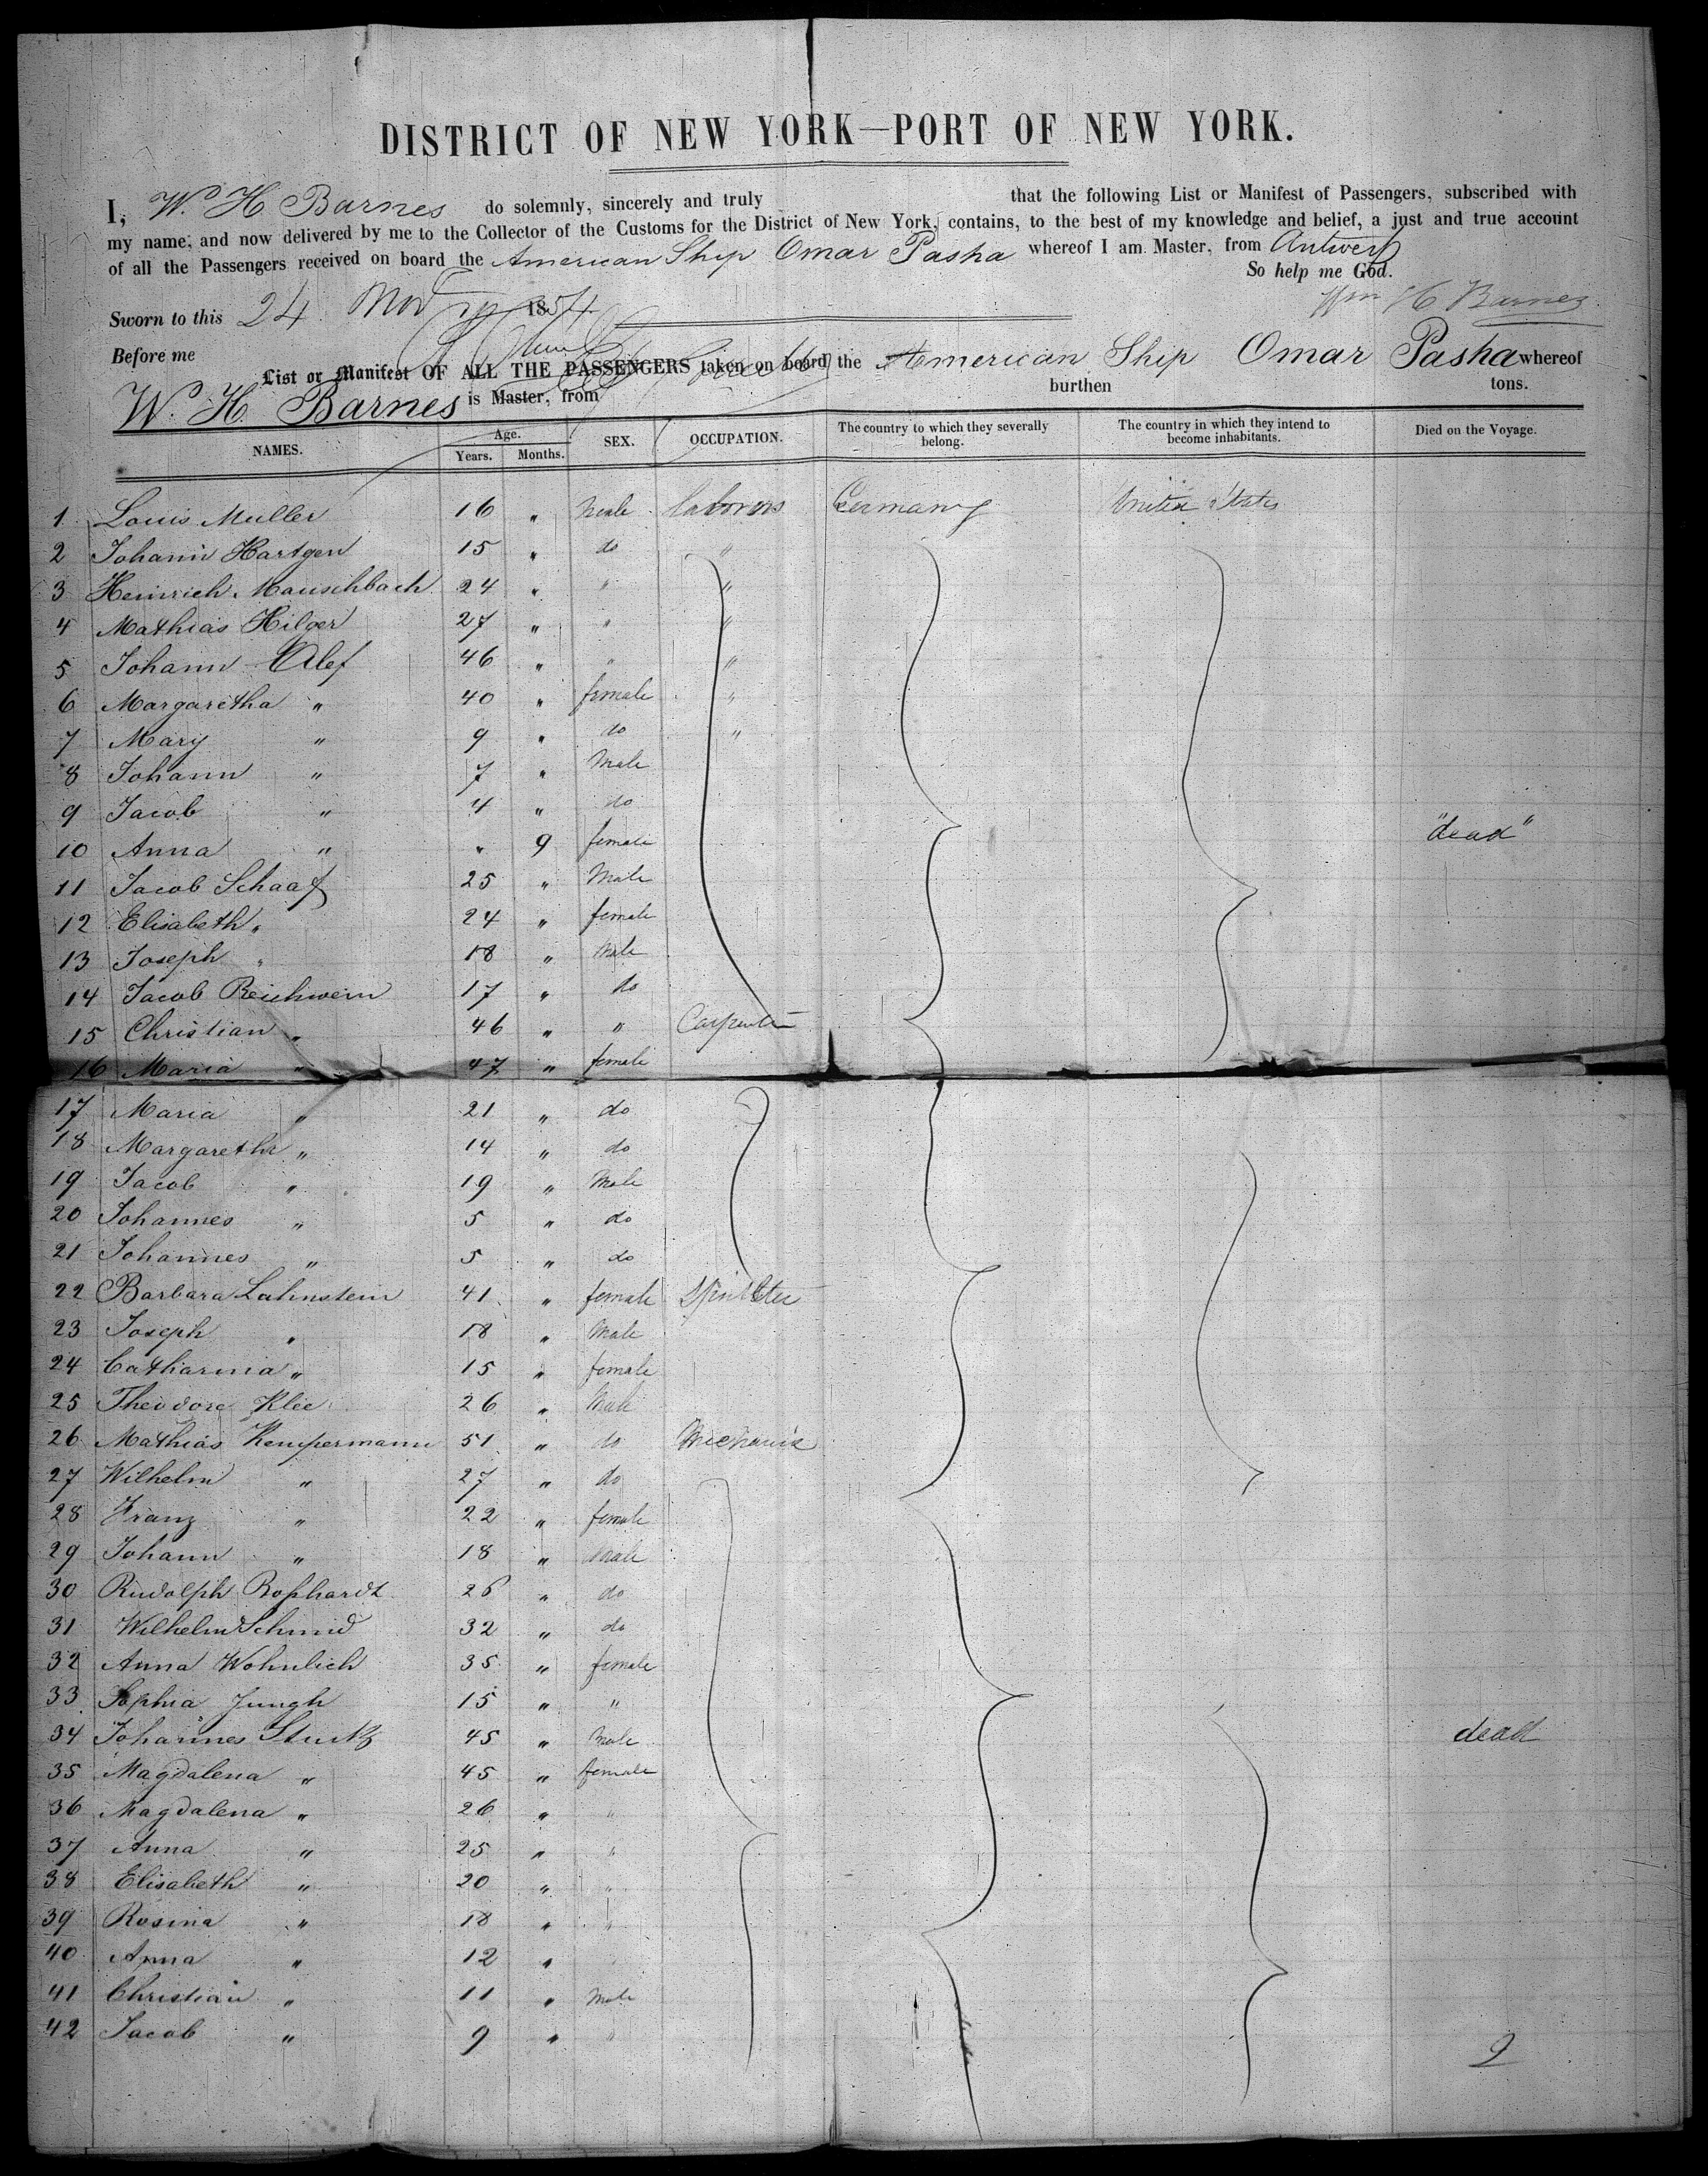 DISTRICT OF NEW YORK—PORT OF NEW YORK.
I, W. H Barnes do solemnly, sincerely and truly that the following List or Manifest of Passengers, subscribed with
my name, and now delivered by me to the Collector of the Customs for the District of New York, contains, to the best of my knowledge and belief, a just and true account
of all the Passengers received on board the American Ship Omar Pasha whereof I am Master, from Antwerp
So help me God.
Sworn to this 24 Nov 1854 Wm H Barnes
Before me
List or Manifest OF ALL THE PASSENGERS taken on board the American Ship Omar Pasha whereof
W. H. Barnes is Master, from burthen tons.
NAMES. Age. Years. Months. SEX. OCCUPATION. The country to which they severally belong. The country in which they intend to become inhabitants. Died on the Voyage.
1 Louis Muller 16 " Male laborers Germany United States
2 Johann Hartgen 15 " do "
3 Heinrich Mauschbach 24 " " "
4 Mathias Hilger 27 " " "
5 Johann Alef 46 " " "
6 Margaretha " 40 " female "
7 Mary " 9 " do "
8 Johann " 7 " Male
9 Jacob " 4 " do
10 Anna " " 9 female "dead"
11 Jacob Schaaf 25 " Male
12 Elisabeth " 24 " female
13 Joseph " 18 " Male
14 Jacob Reichwein 17 " do
15 Christian " 46 " " Carpenter
16 Maria " 47 " female
17 Maria " 21 " do
18 Margaretha " 14 " do
19 Jacob " 19 " Male
20 Johannes " 5 " do
21 Johannes " 5 " do
22 Barbara Lahnstein 41 " female Spinster
23 Joseph " 18 " Male
24 Catharina " 15 " female
25 Theodore Klee 26 " Male
26 Mathias Kempermann 51 " do Mechanic
27 Wilhelm " 27 " do
28 Franz " 22 " female
29 Johann " 18 " Male
30 Rudolph Boßhardt 26 " do
31 Wilhelm Schmid 32 " do
32 Anna Wohnlich 35 " female
33 Sophia Jungh 15 " "
34 Johannes Stutz 45 " Male dead
35 Magdalena " 45 " female
36 Magdalena " 26 " "
37 Anna " 25 " "
38 Elisabeth " 20 " "
39 Rosina " 18 " "
40 Anna " 12 "
41 Christian " 11 " Male
42 Jacob " 9 " "
2